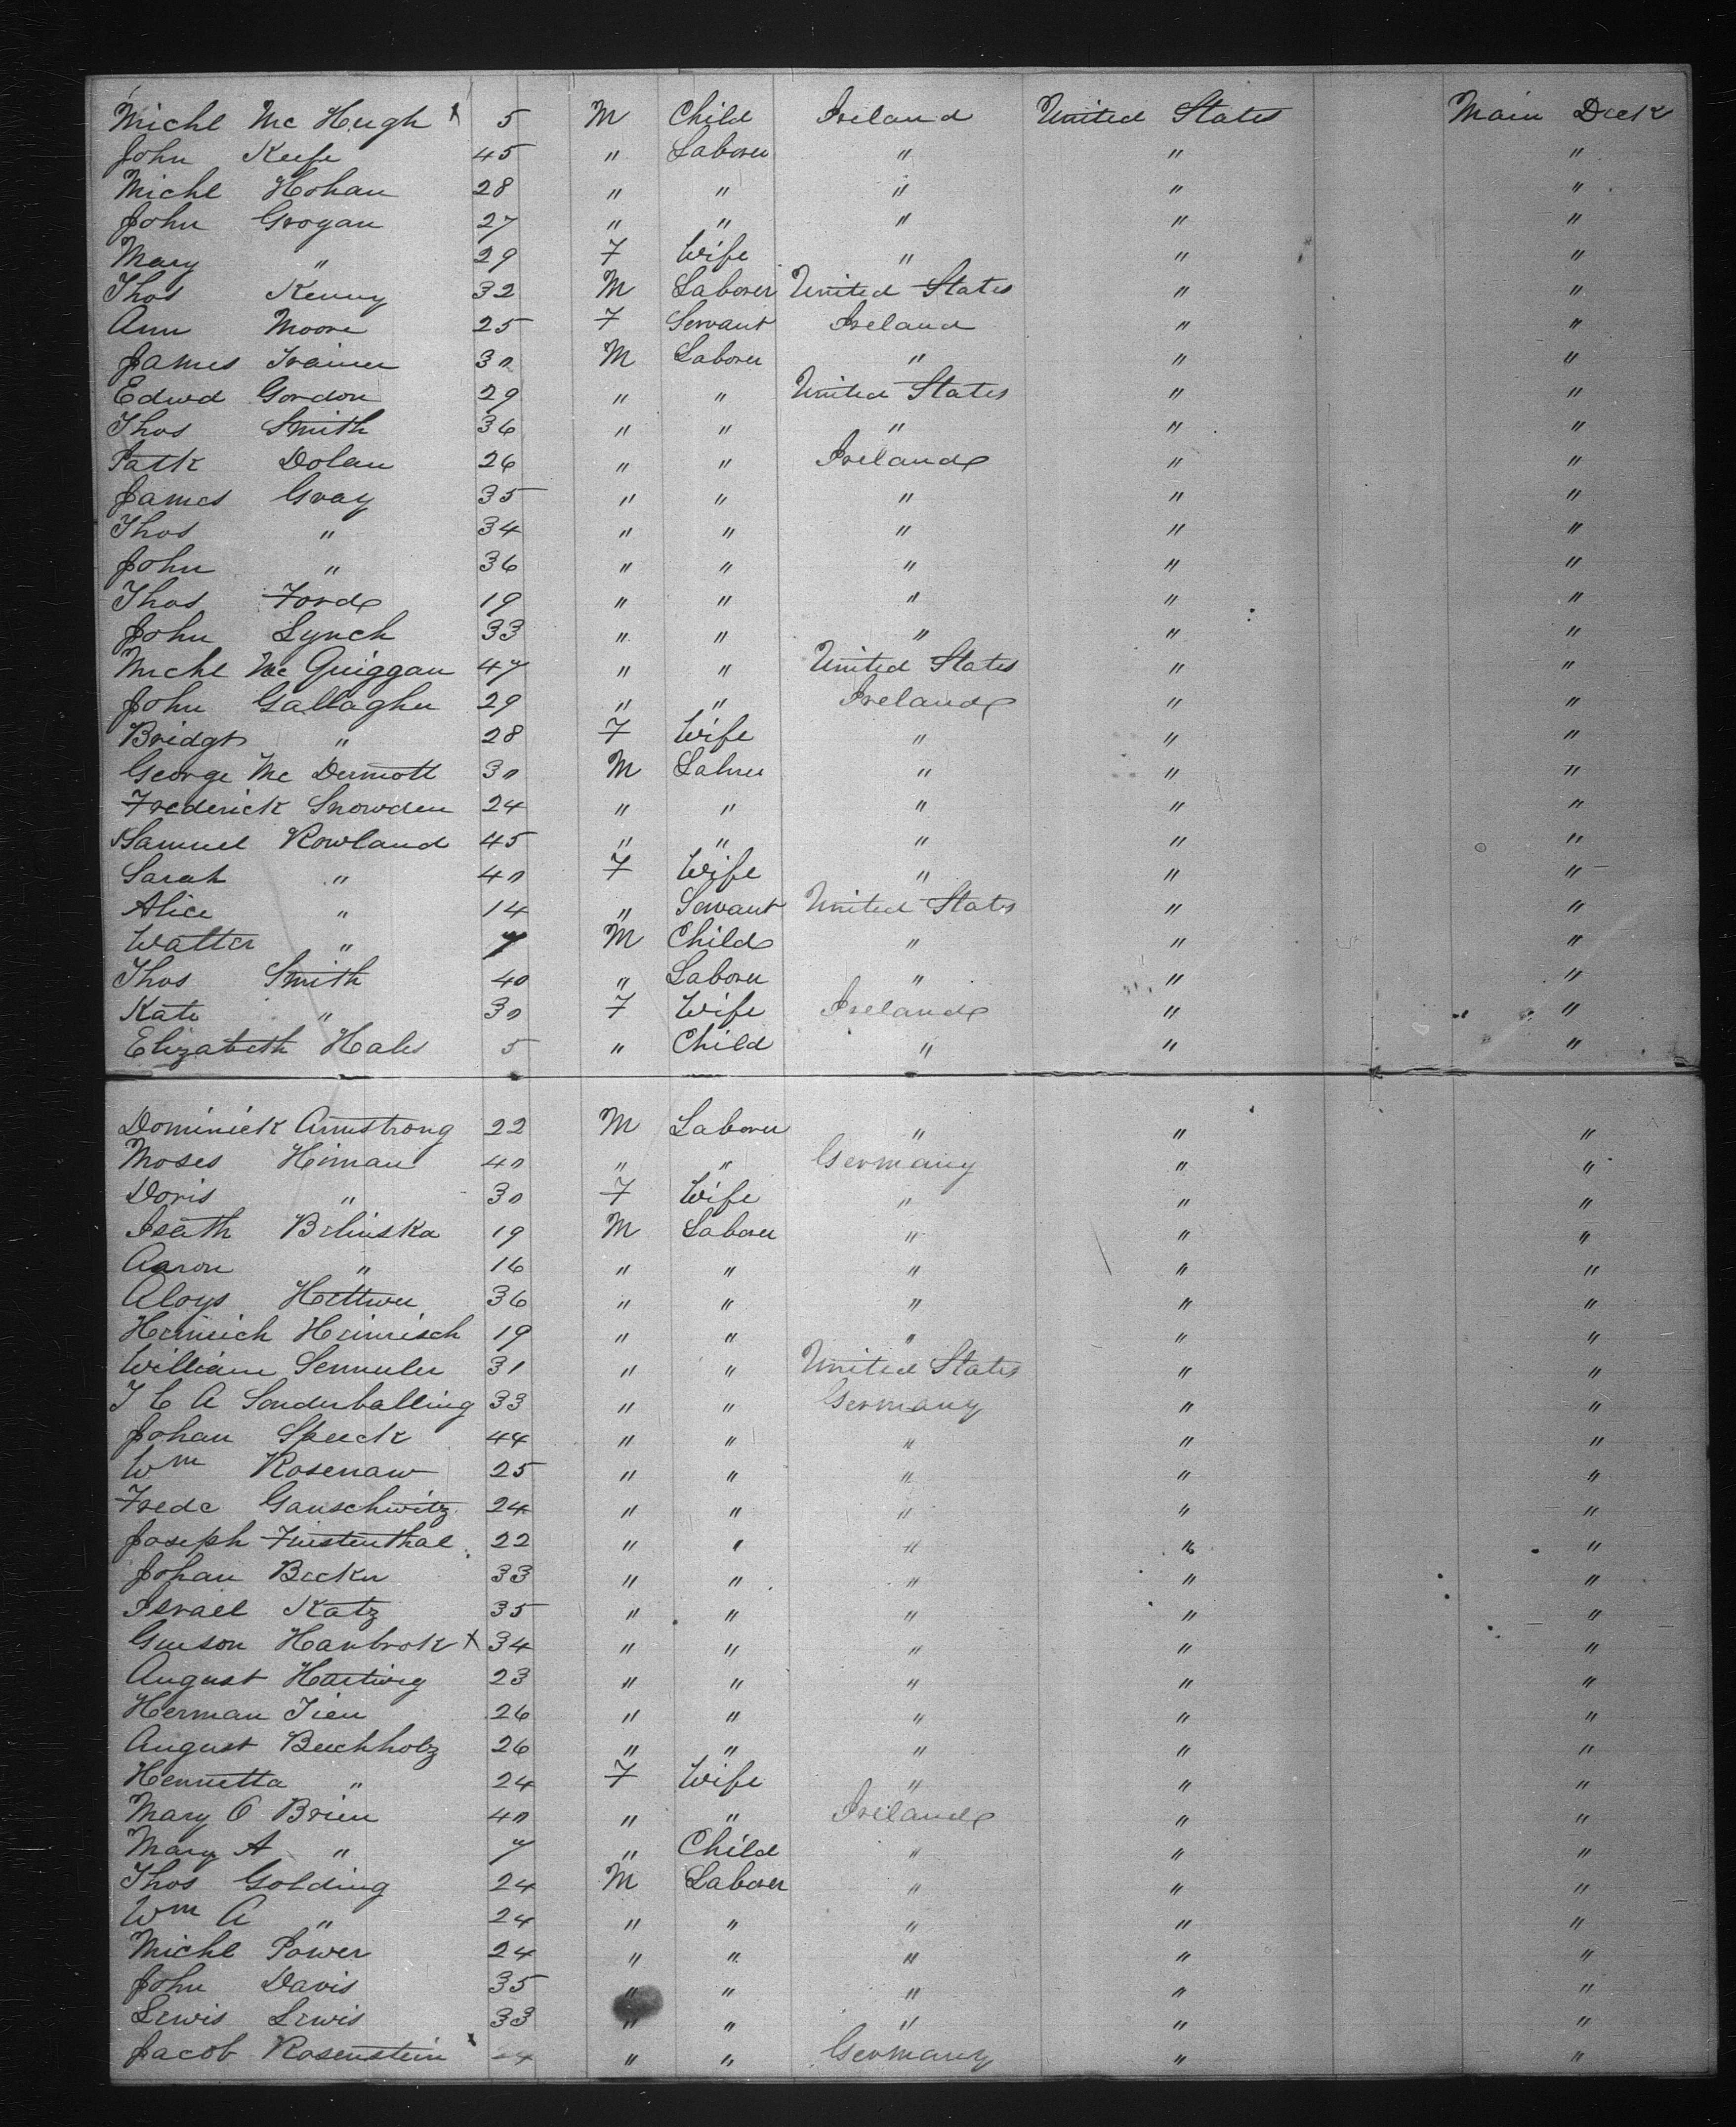 Michl Mc Hugh 5 M Child Ireland United States Main Deck
John Keefe 45 " Laborer " " "
Michl Hohan 28 " " " " "
John Grogan 27 " " " " "
Mary " 29 F Wife " " "
Thos Kenny 32 M Laborer United States " "
Ann Moore 25 F Servant Ireland " "
James Trainer 30 M Laborer " " "
Edwd Gordon 29 " " United States " "
Thos Smith 36 " " " " "
Patk Dolan 26 " " Ireland " "
James Gray 35 " " " " "
Thos " 34 " " " " "
John " 36 " " " " "
Thos Ford 19 " " " " "
John Lynch 33 " " " " "
Michl Mc Guiggan 47 " " United States " "
John Gallagher 29 " " Ireland " "
Bridgt " 28 F Wife " " "
George Mc Dermott 30 M Labrer " " "
Frederick Snowden 24 " " " " "
Samuel Rowland 45 " " " " "
Sarah " 40 F Wife " " "
Alice " 14 " Servant United States " "
Walter " 7 M Child " " "
Thos Smith 40 " Laborer " " "
Kate " 30 F Wife Ireland " "
Elizabeth Hales 5 " Child " " "
Dominick Armstrong 22 M Laborer " " "
Moses Himan 40 " " Germany " "
Doris " 30 F Wife " " "
Belinska 19 M Laborer " " "
Aaron " 16 " " " " "
Aloys Hettwer 36 " " " " "
Heinrich Heinrisch 19 " " " " "
William 31 " " United States " "
T C A Sonderballing 33 " " Germany " "
Johan Speeck 44 " " " " "
Wm Rosenaw 25 " " " " "
Fredc Ganschwitz 24 " " " " "
Joseph Finstenthal 22 " " " " "
Johan Becker 33 " " " " "
Israel Katz 35 " " " " "
Hanbrok x 34 " " " " "
August Hartwig 23 " " " " "
Herman Tien 26 " " " " "
August Buchholz 26 " " " " "
Henrietta " 24 F Wife " " "
Mary O Brien 40 " " Ireland " "
Mary A " 7 " Child " " "
Thos Golding 24 M Laborer " " "
Wm A " 24 " " " " "
Michl Power 24 " " " " "
John Davis 35 " " " " "
Lewis Lewis 33 " " " " "
Jacob Rosenstein x 24 " " Germany " "